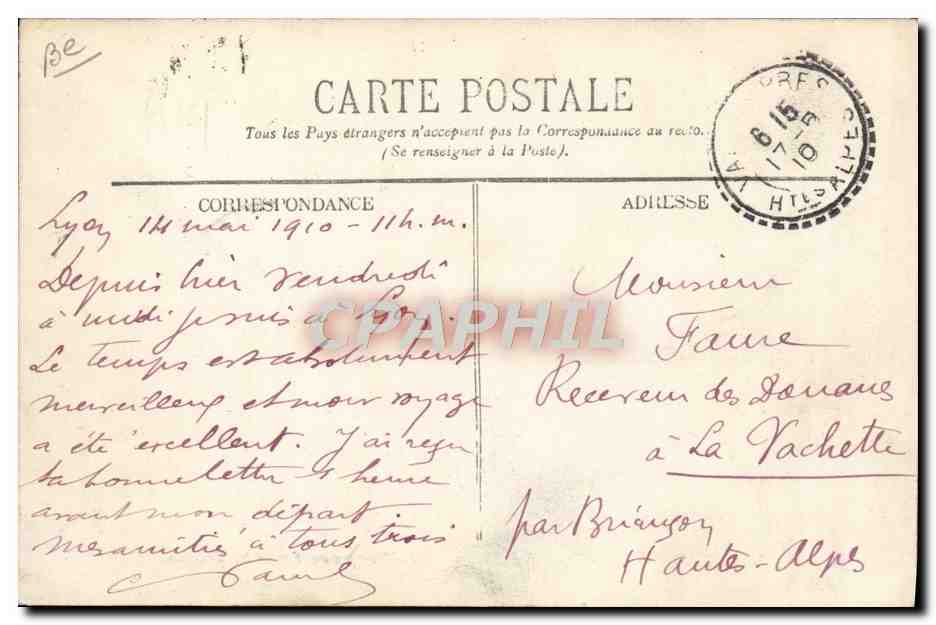 Be
CARTE POSTALE
Tous les Pays étrangers n'acceptent pas la Correspondance au recto.
(Se renseigner à la Poste).
VA PRES
6 15
17 - 5
10
HTES ALPES
CORRESPONDANCE
Lyon 14 mai 1910 - 11 h. m.
Depuis hier vendredi
à midi je suis à Lyon.
Le temps est absolument
merveilleux et mon voyage
a été excellent. J'ai reçu
ta bonne lettre 1 heure
avant mon départ.
Mes amitiés à tous trois
ADRESSE
Monsieur
Faure
Receveur des Douanes
à La Vachette
par Briançon
Hautes-Alpes
CPAPHIL